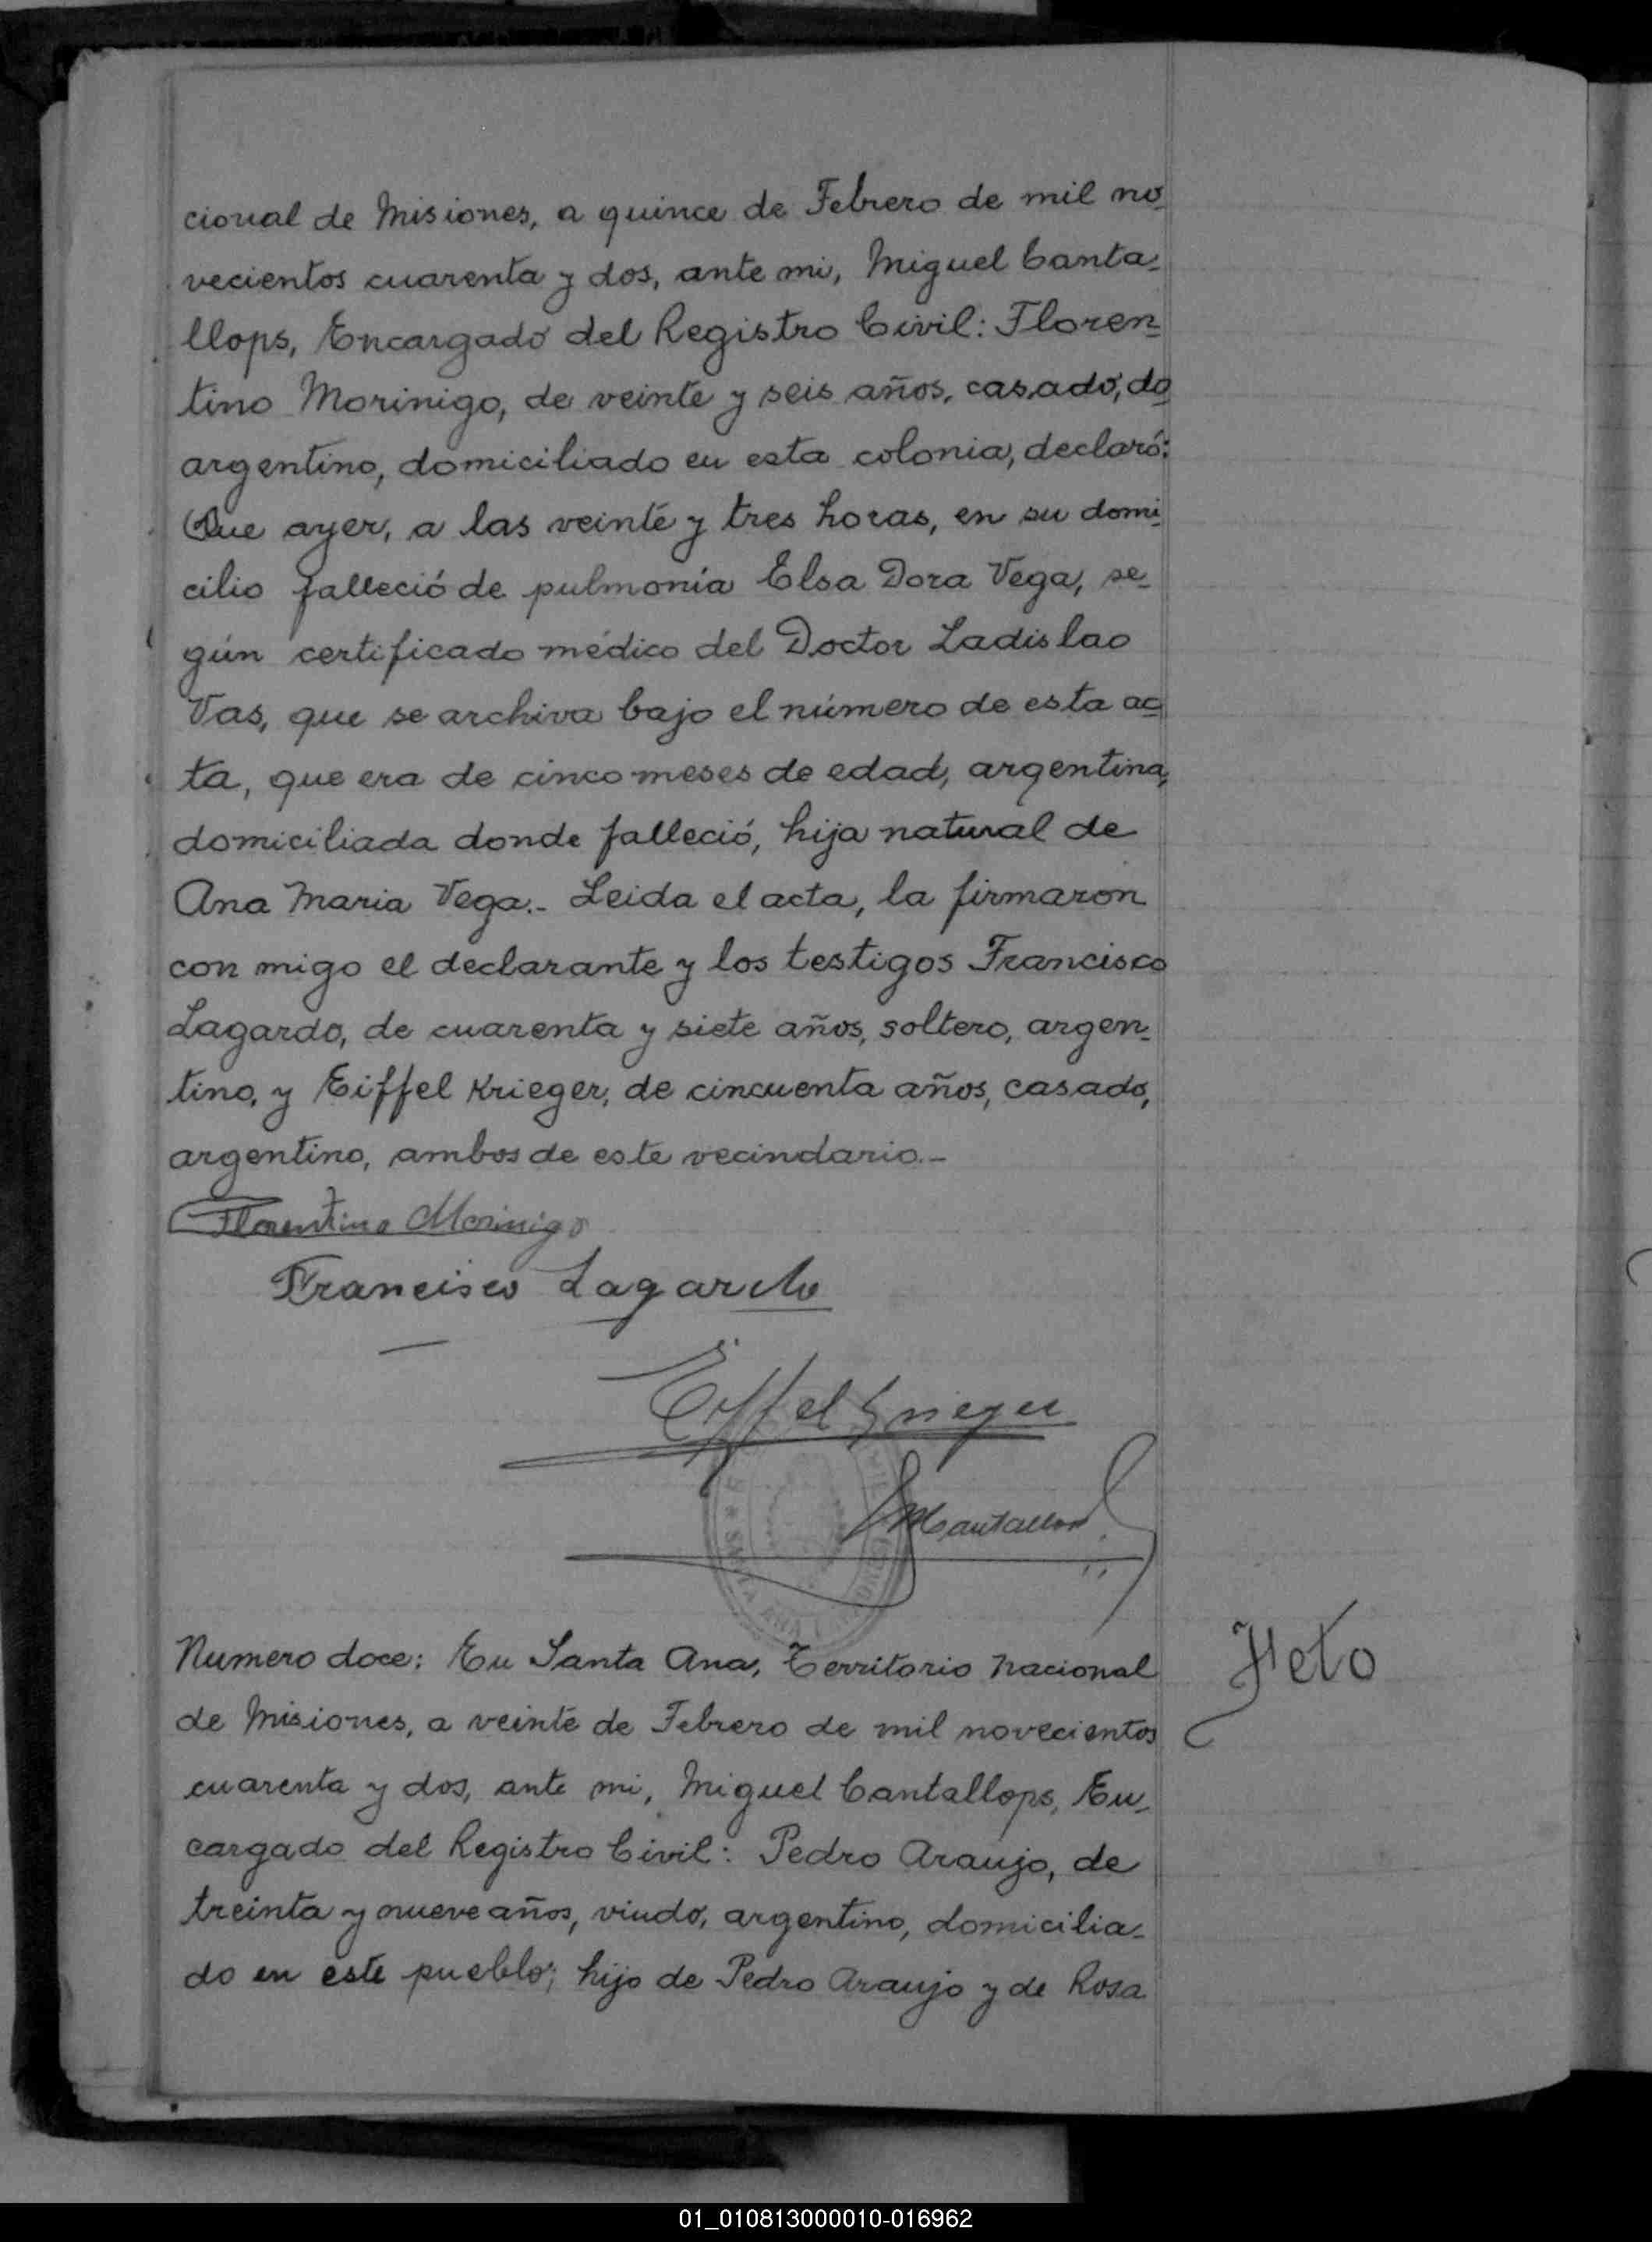 cional de Misiones, a quince de Febrero de mil no-
vecientos cuarenta y dos, ante mi, Miguel Canta-
llops, Encargado del Registro Civil: Floren-
tino Morinigo, de veinte y seis años, casado, do
argentino, domiciliado en esta colonia, declaró:
Que ayer, a las veinte y tres horas, en su domi-
cilio falleció de pulmonía Elsa Dora Vega, se-
gún certificado médico del Doctor Ladislao
Vas, que se archiva bajo el número de esta ac-
ta, que era de cinco meses de edad, argentina,
domiciliada donde falleció, hija natural de
Ana Maria Vega.- Leida el acta, la firmaron
con migo el declarante y los testigos Francisco
Lagardo, de cuarenta y siete años, soltero, argen-
tino, y Eiffel Krieger, de cincuenta años, casado,
argentino, ambos de este vecindario.-
Florentino Morinigo
Francisco Lagardo
Eiffel Krieger
MCantallops
SANTA ANA
Numero doce: En Santa Ana, Territorio Nacional
de Misiones, a veinte de Febrero de mil novecientos
cuarenta y dos, ante mi, Miguel Cantallops, En-
cargado del Registro Civil: Pedro Araujo, de
treinta y nueve años, viudo, argentino, domicilia-
do en este pueblo; hijo de Pedro Araujo y de Rosa
Feto
01_010813000010-016962